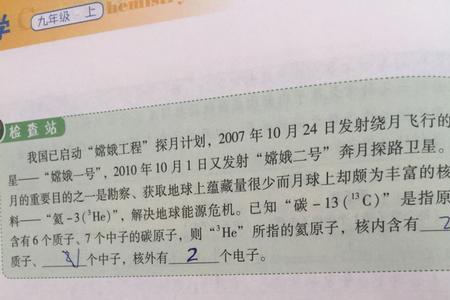 学
九年级 上
Chemistry
检查站
我国已启动“嫦娥工程”探月计划，2007 年 10 月 24 日发射绕月飞行的
星——“嫦娥一号”，2010 年 10 月 1 日又发射“嫦娥二号”奔月探路卫星。
月的重要目的之一是勘察、获取地球上蕴藏量很少而月球上却颇为丰富的核
料——“氦-3(³He)”，解决地球能源危机。已知“碳-13(¹³C)”是指原
含有 6 个质子、7 个中子的碳原子，则“³He”所指的氦原子，核内含有 2
质子、 个中子，核外有 2 个电子。